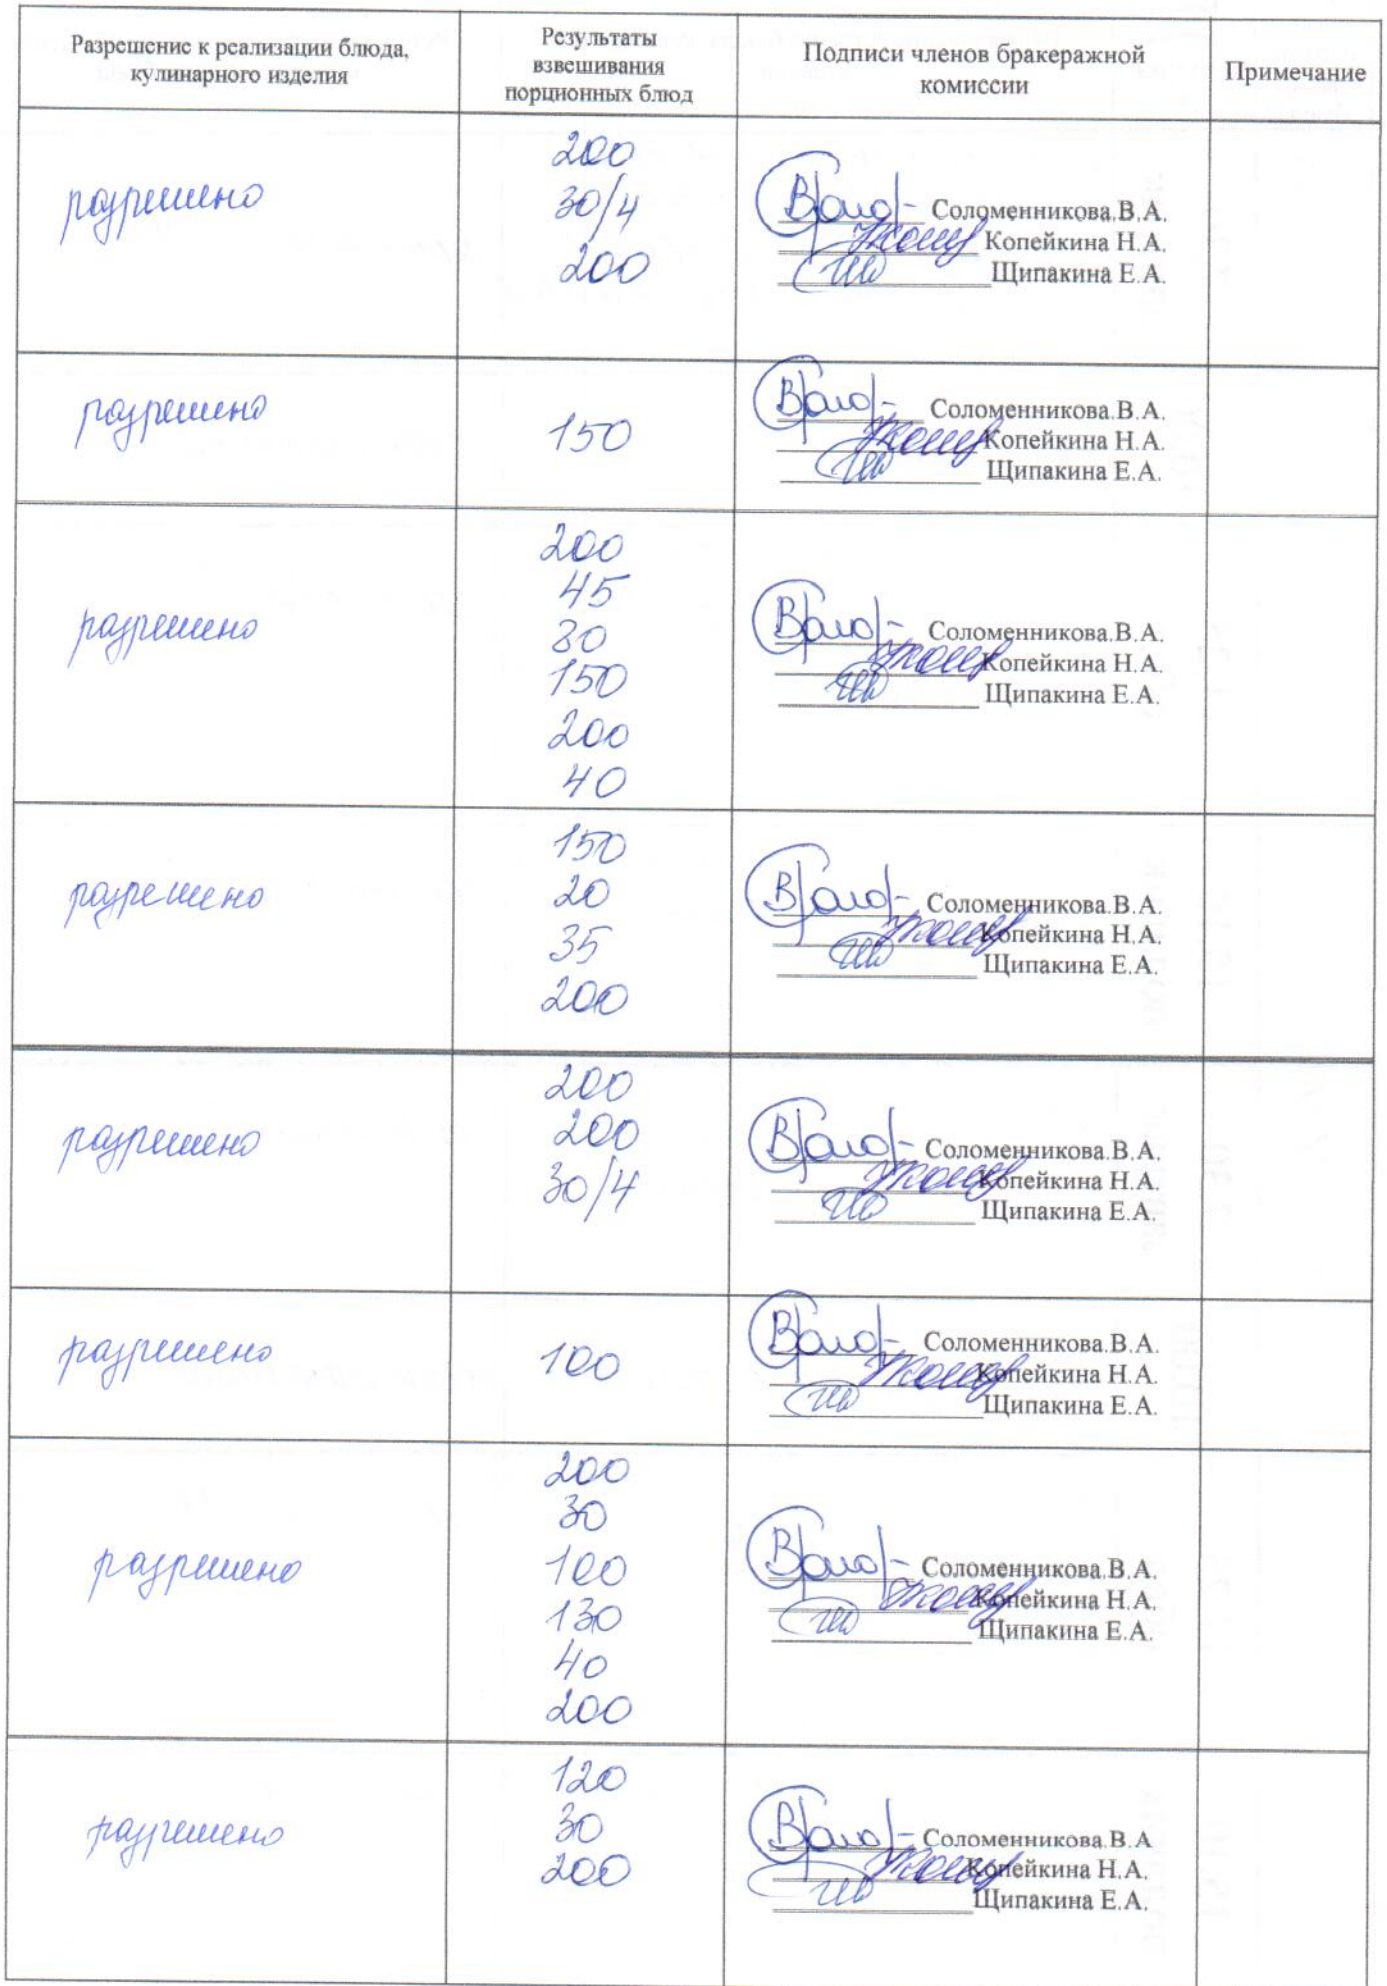 Разрешение к реализации блюда,
кулинарного изделия
Результаты
взвешивания
порционных блюд
Подписи членов бракеражной
комиссии
Примечание
разрешено
200
30/4
200
Соломенникова.В.А.
Копейкина Н.А.
Щипакина Е.А.
разрешено
150
Соломенникова.В.А.
Копейкина Н.А.
Щипакина Е.А.
разрешено
200
45
80
150
200
40
Соломенникова.В.А.
Копейкина Н.А.
Щипакина Е.А.
разрешено
150
20
35
200
Соломенникова.В.А.
Копейкина Н.А.
Щипакина Е.А.
разрешено
200
200
30/4
Соломенникова.В.А.
Копейкина Н.А.
Щипакина Е.А.
разрешено
100
Соломенникова.В.А.
Копейкина Н.А.
Щипакина Е.А.
разрешено
200
30
100
130
40
200
Соломенникова.В.А.
Копейкина Н.А.
Щипакина Е.А.
разрешено
120
30
200
Соломенникова.В.А
Копейкина Н.А.
Щипакина Е.А.